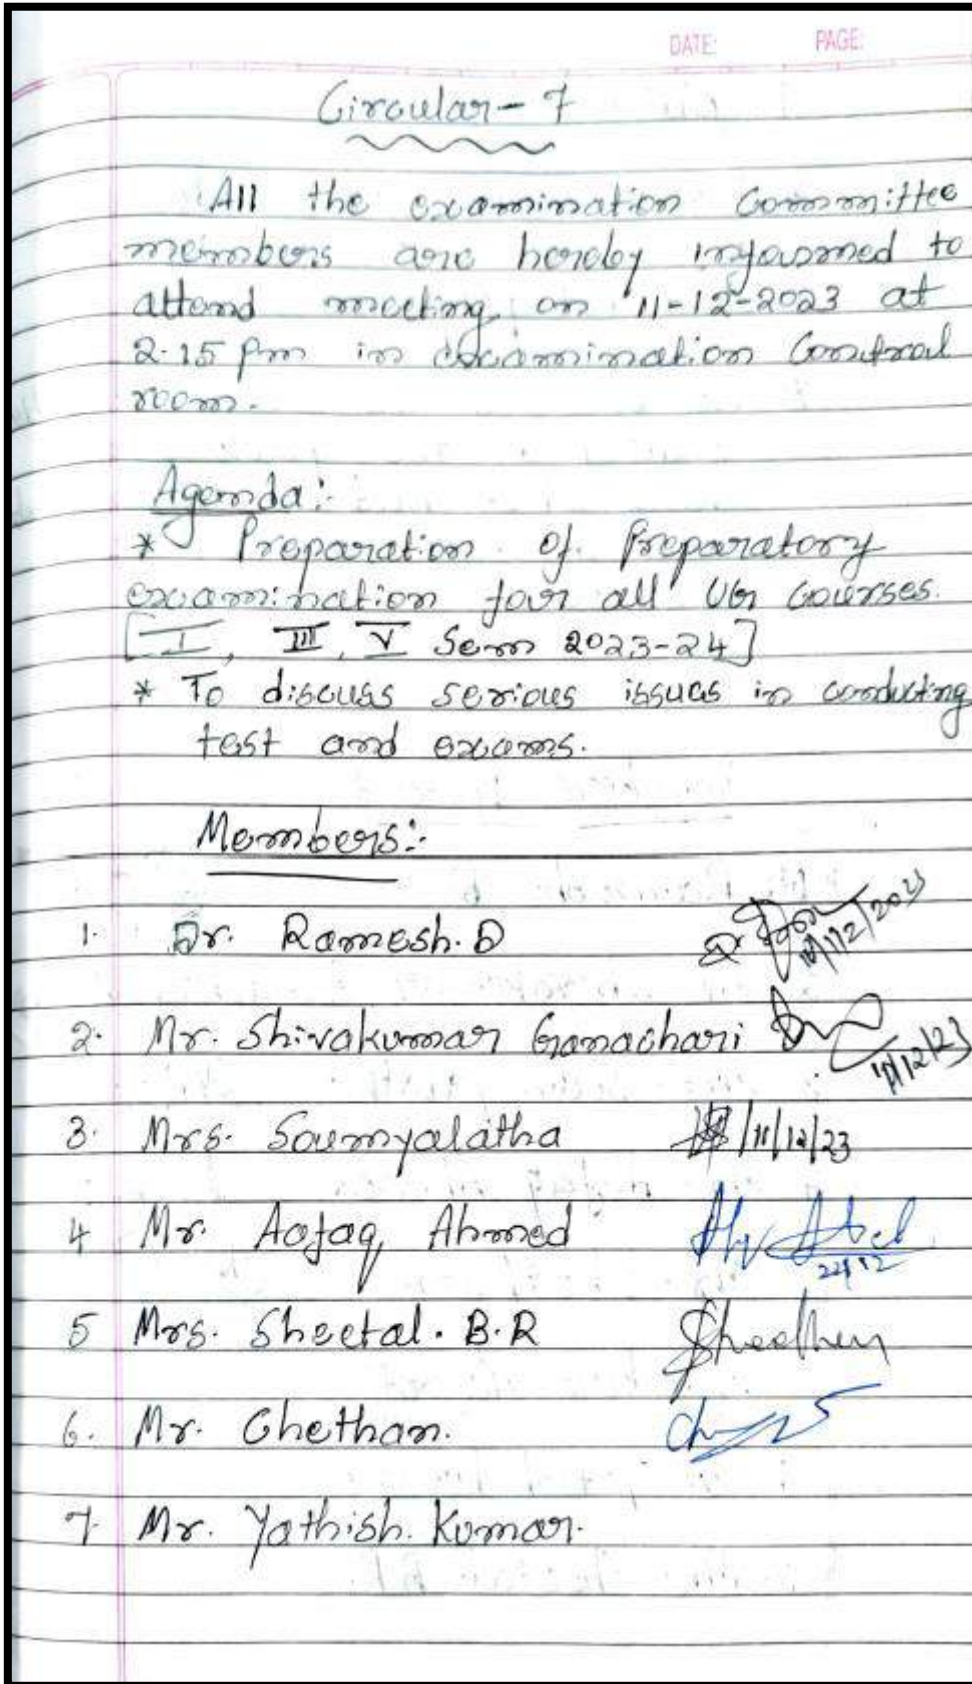 DATE: PAGE:
Circular - 7
All the examination Committee
members are hereby informed to
attend meeting on 11-12-2023 at
2.15 Pm in examination Control
room.
Agenda:
* Preparation of Preparatory
examination for all UG courses.
[I, III, V Sem 2023-24]
* To discuss serious issues in conducting
test and exams.
Members:-
1. Dr. Ramesh. D
2. Mr. Shivakumar Ganachari 11/12/23
3. Mrs. Soumyalatha 11/12/23
4 Mr. Aofaq Ahmed
5 Mrs. Sheetal. B.R
6. Mr. Chethan.
7. Mr. Yathish. Kumar.